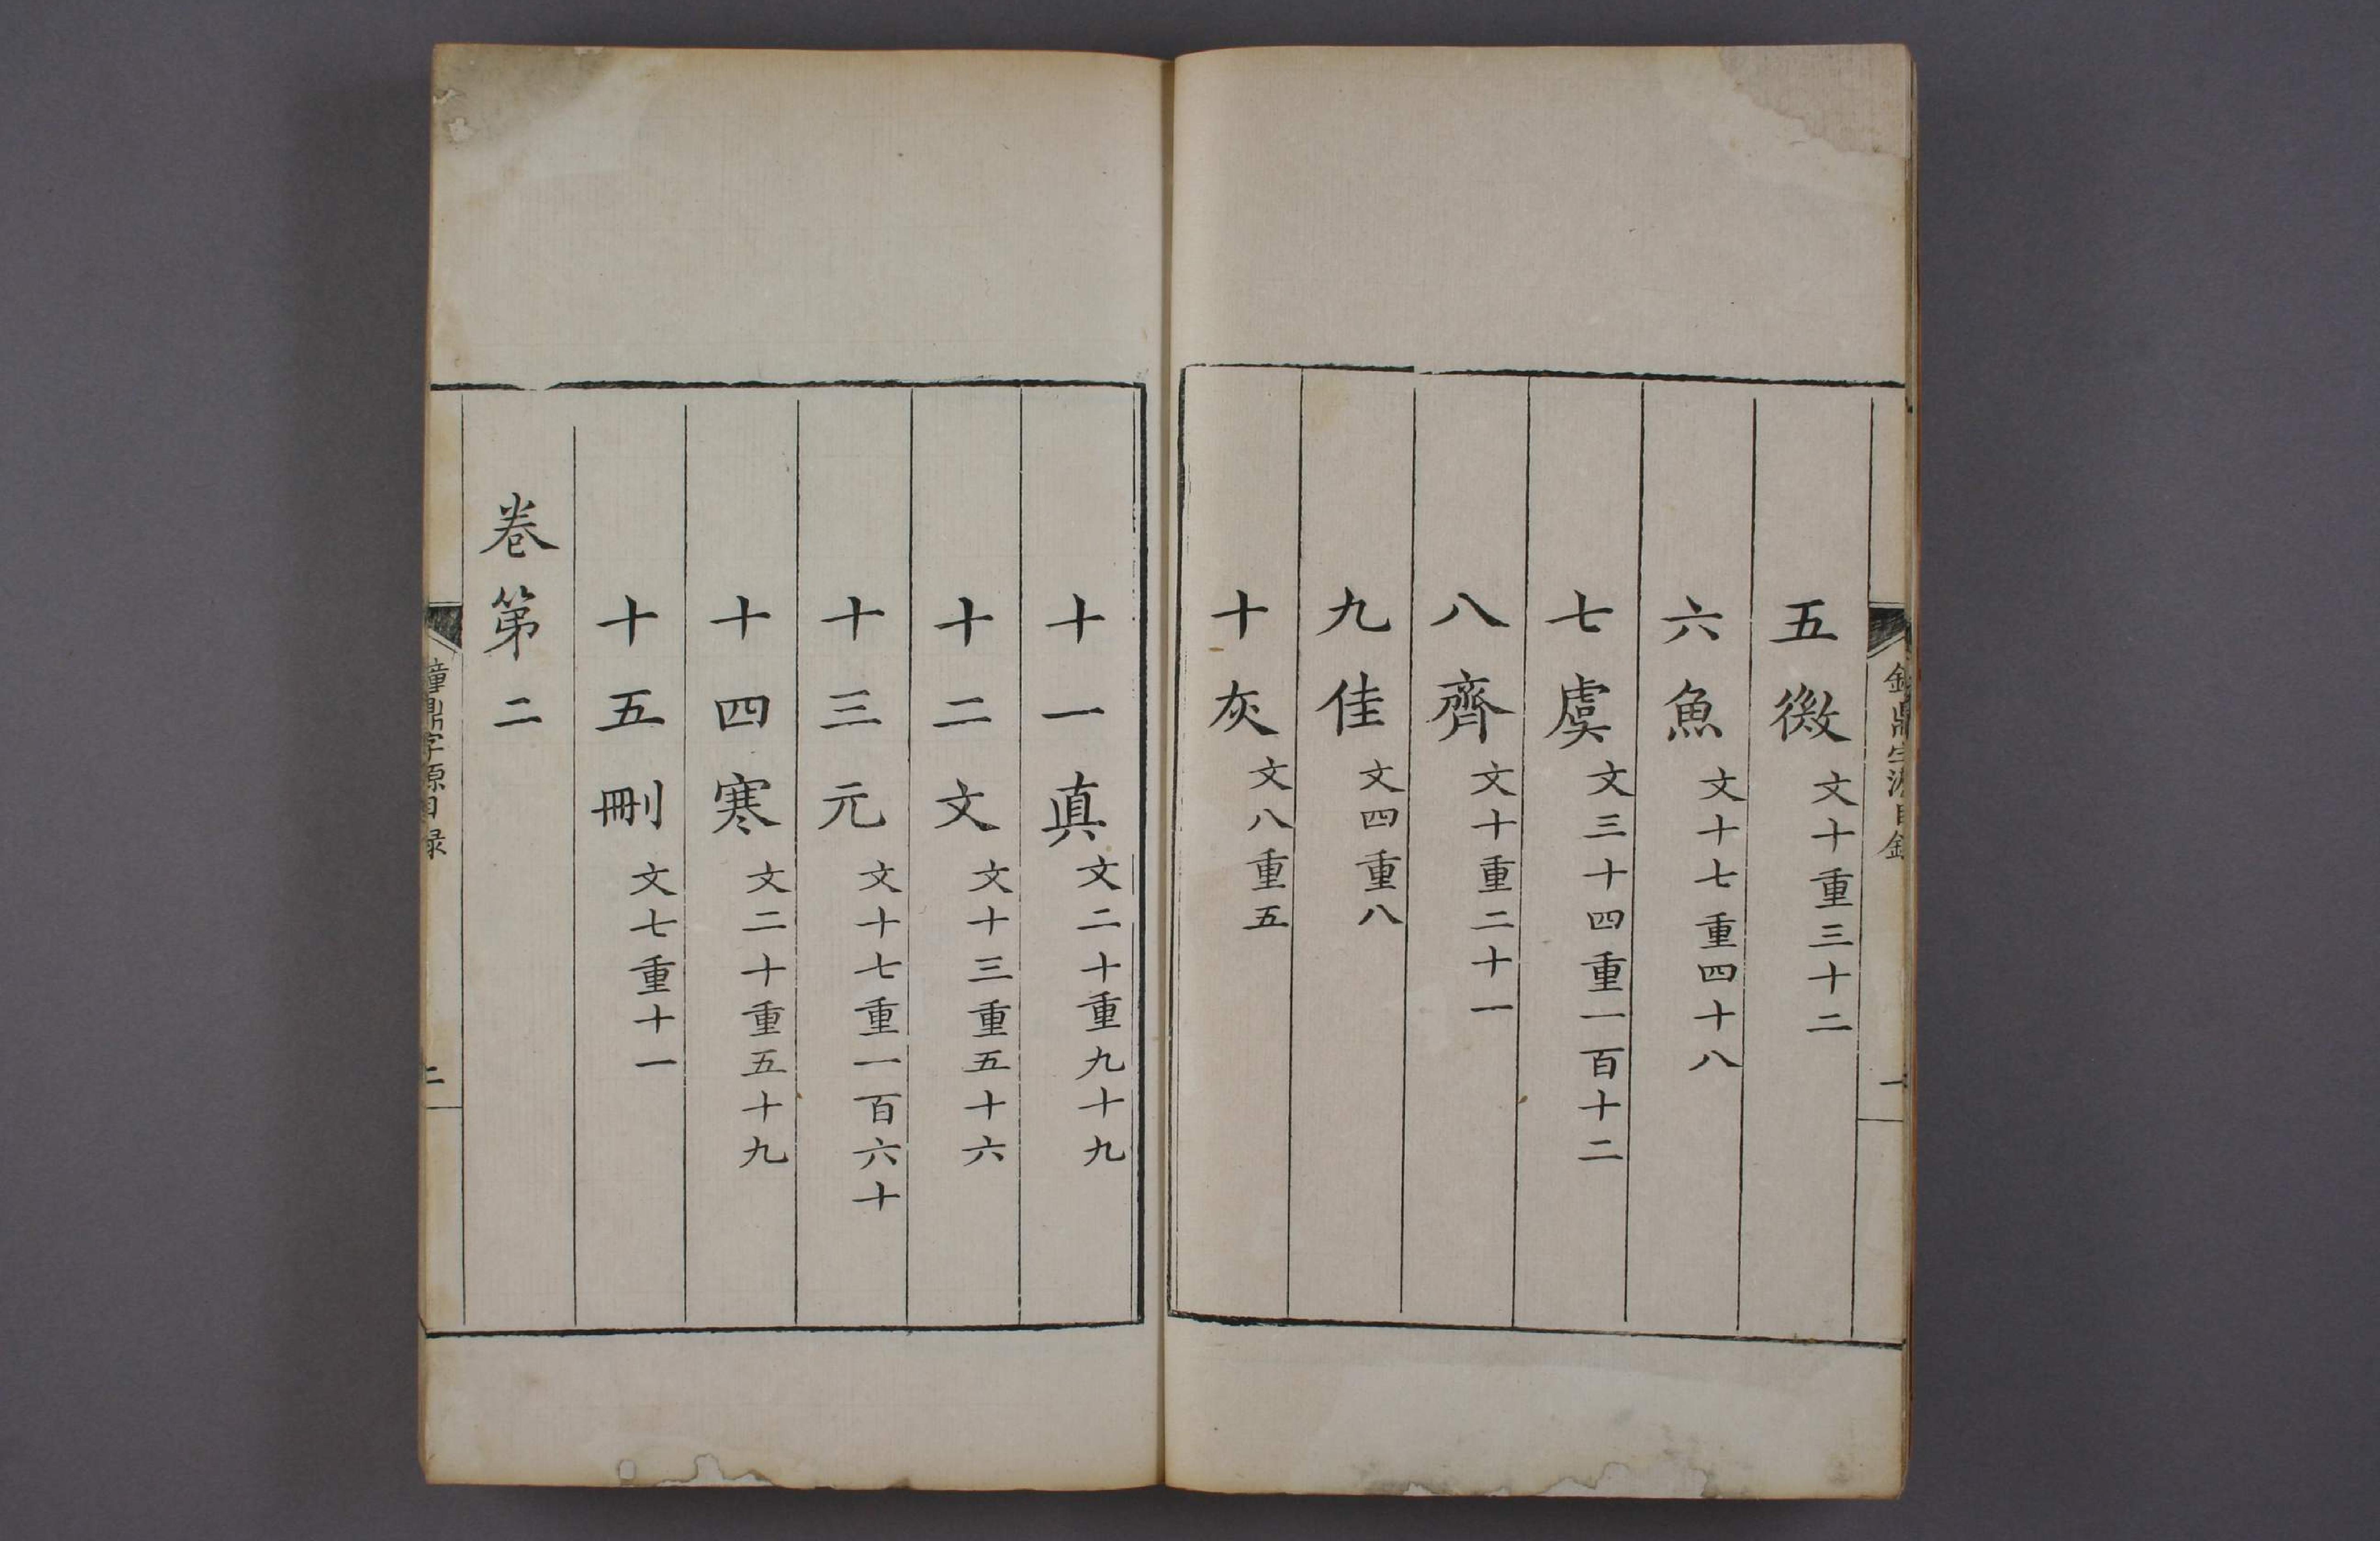 五微文十重三十二
六魚文十七重四十八
七虞文三十四重一百十二
八齊文十重二十一
九佳文四重八
十灰文八重五
十一真文二十重九十九
十二文文十三重五十六
十三元文十七重一百六十
十四寒文二十重五十九
十五刪文七重十一
卷第二
鐘鼎字源目録
二